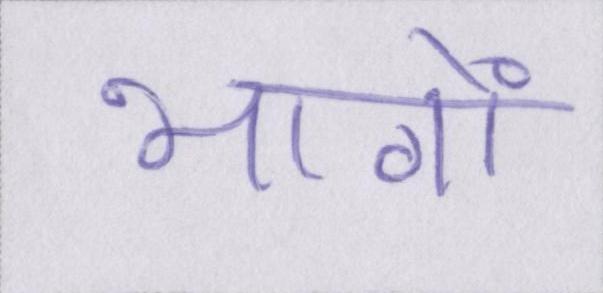 भागों